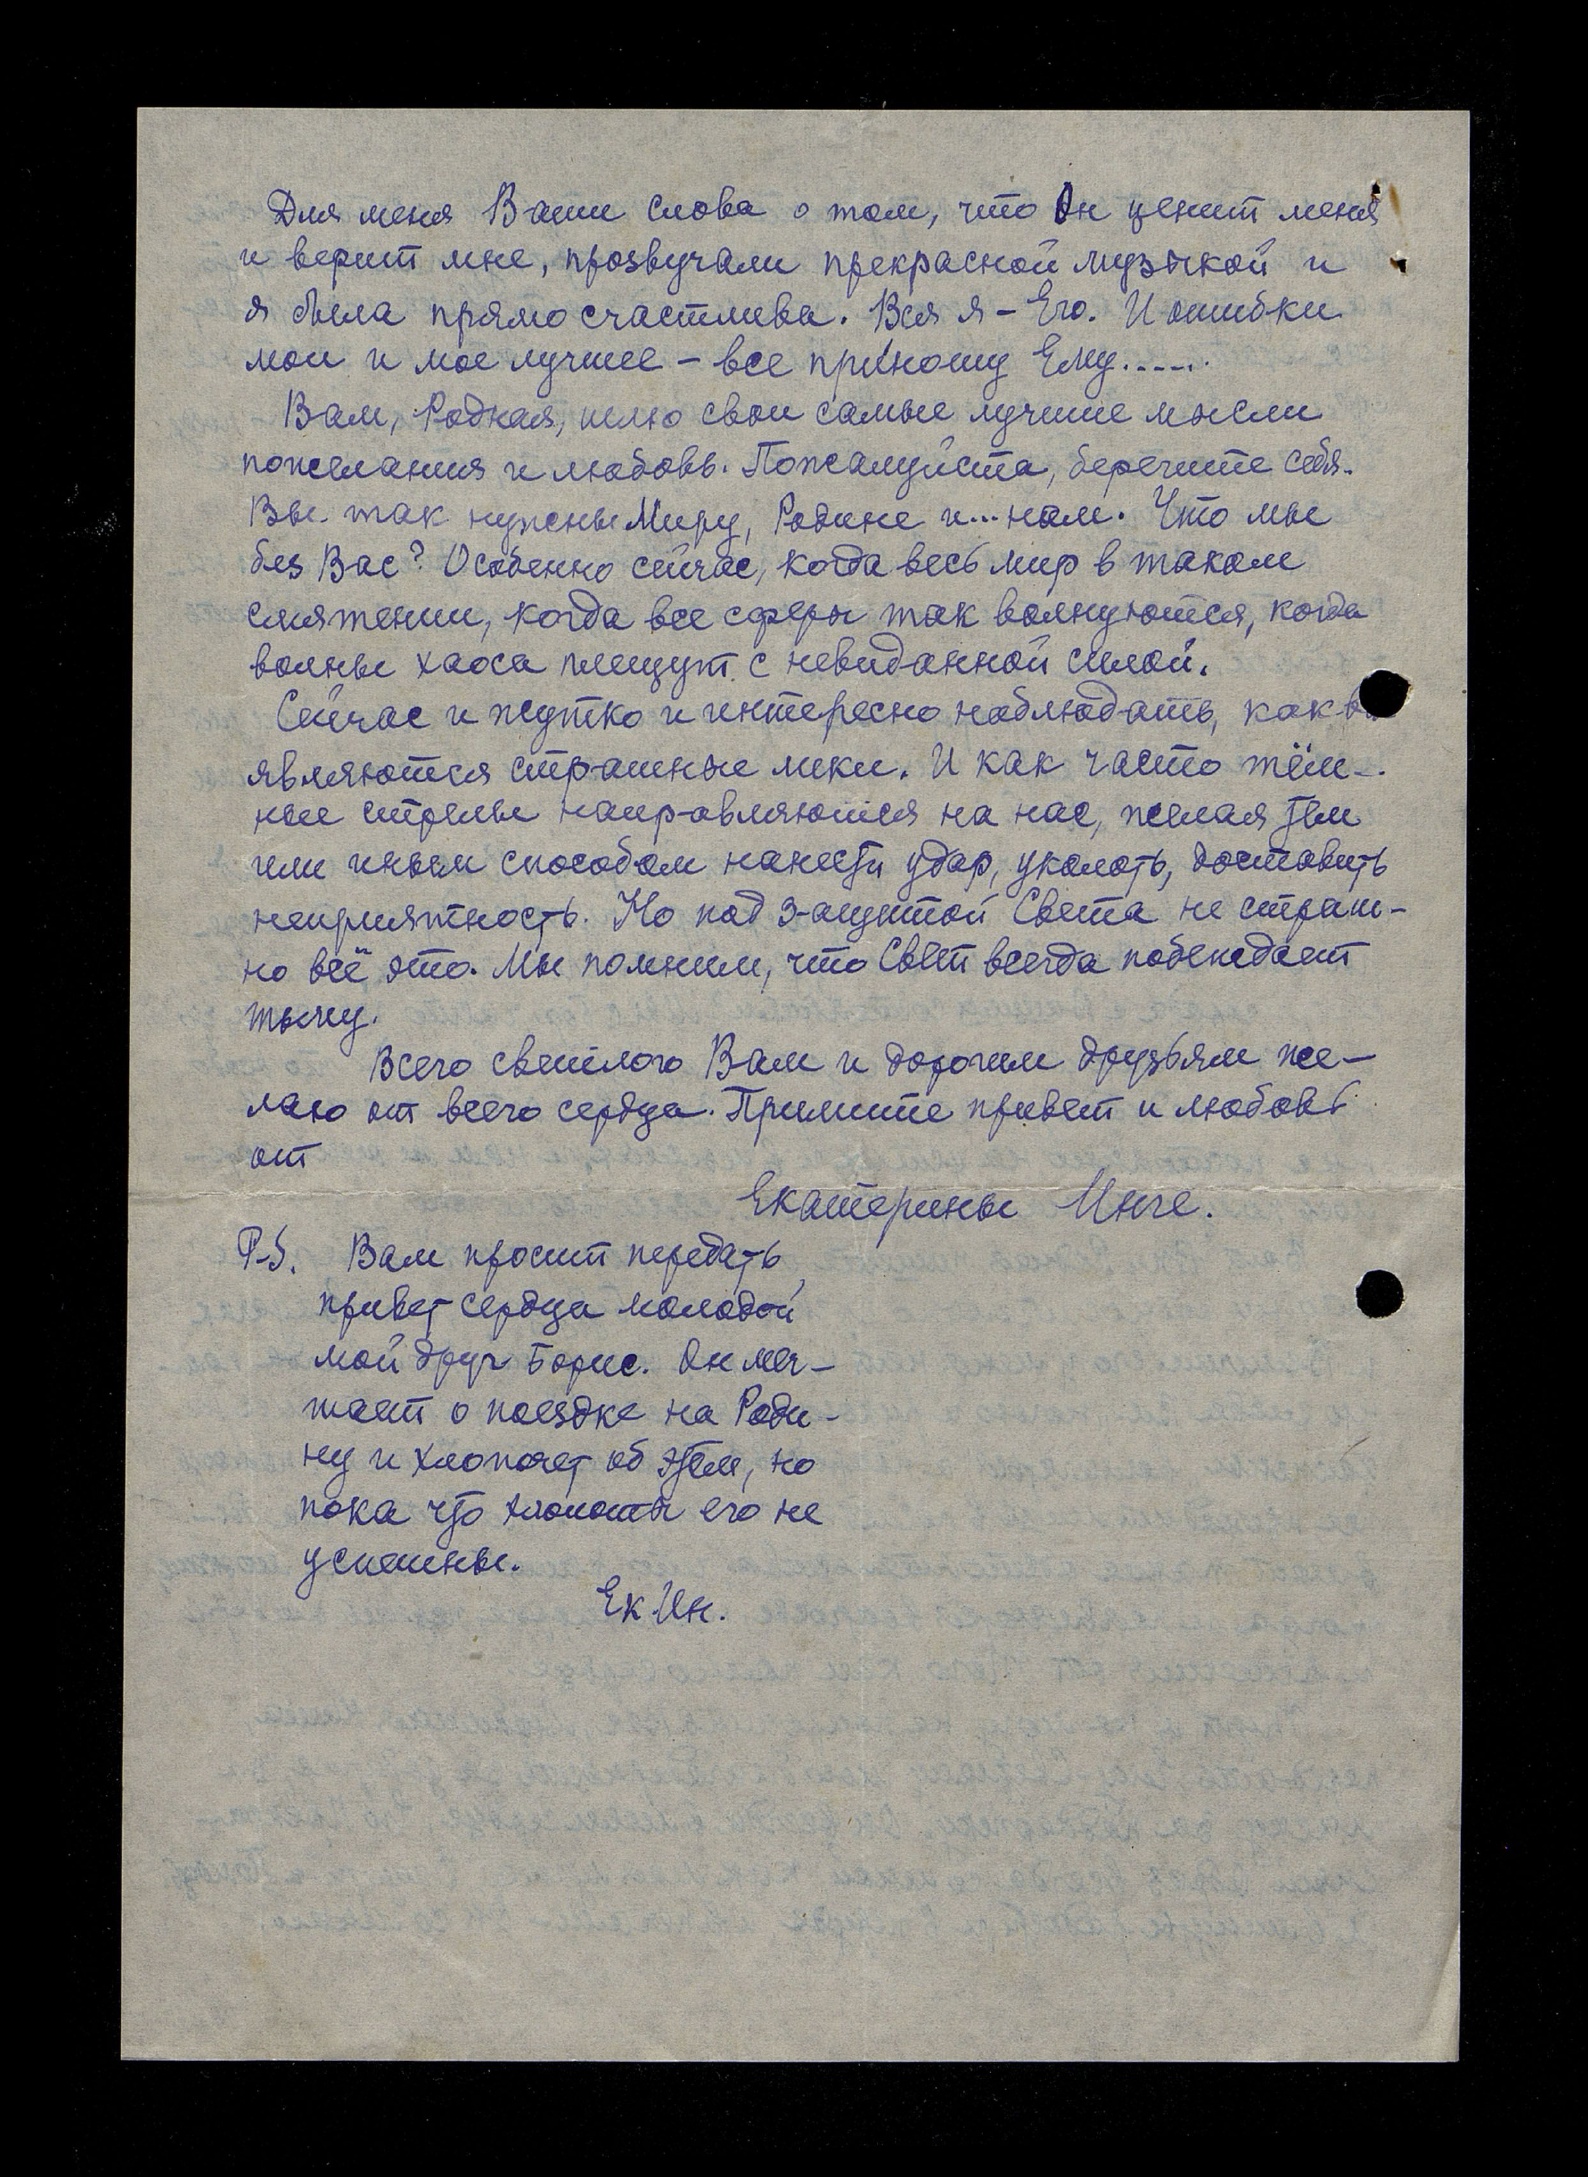 Для меня Ваши слова о том, что Он ценит меня
и верит мне, прозвучали прекрасной музыкой и
я была прямо счастлива. Вся я – Его. И ошибки
мои и мое лучшее – все приношу Ему......
Вам, Родная, шлю свои самые лучшие мысли
пожелания и любовь. Пожалуйста, берегите себя.
Вы так нужны Миру, Родине и... нам. Что мы
без Вас? Особенно сейчас, когда весь мир в таком
смятении, когда все сферы так волнуются, когда
волны хаоса плещут с невиданной силой.
Сейчас и жутко и интересно наблюдать, как вы
являются страшные лики. И как часто тём-
ные стрелы направляются на нас, желая тем
или иным способом нанести удар, уколоть, доставить
неприятность. Но под защитой Света не страш-
но всё это. Мы помним, что Свет всегда побеждает
тьму.
Всего светлого Вам и дорогим друзьям же-
лаю от всего сердца. Примите привет и любовь
от
Екатерины Инге.
P.S. Вам просит передать
привет сердца молодой
мой друг Борис. Он меч-
тает о поездке на Роди-
ну и хлопочет об этом, но
пока что хлопоты его не
успешны.
Ек Ин.